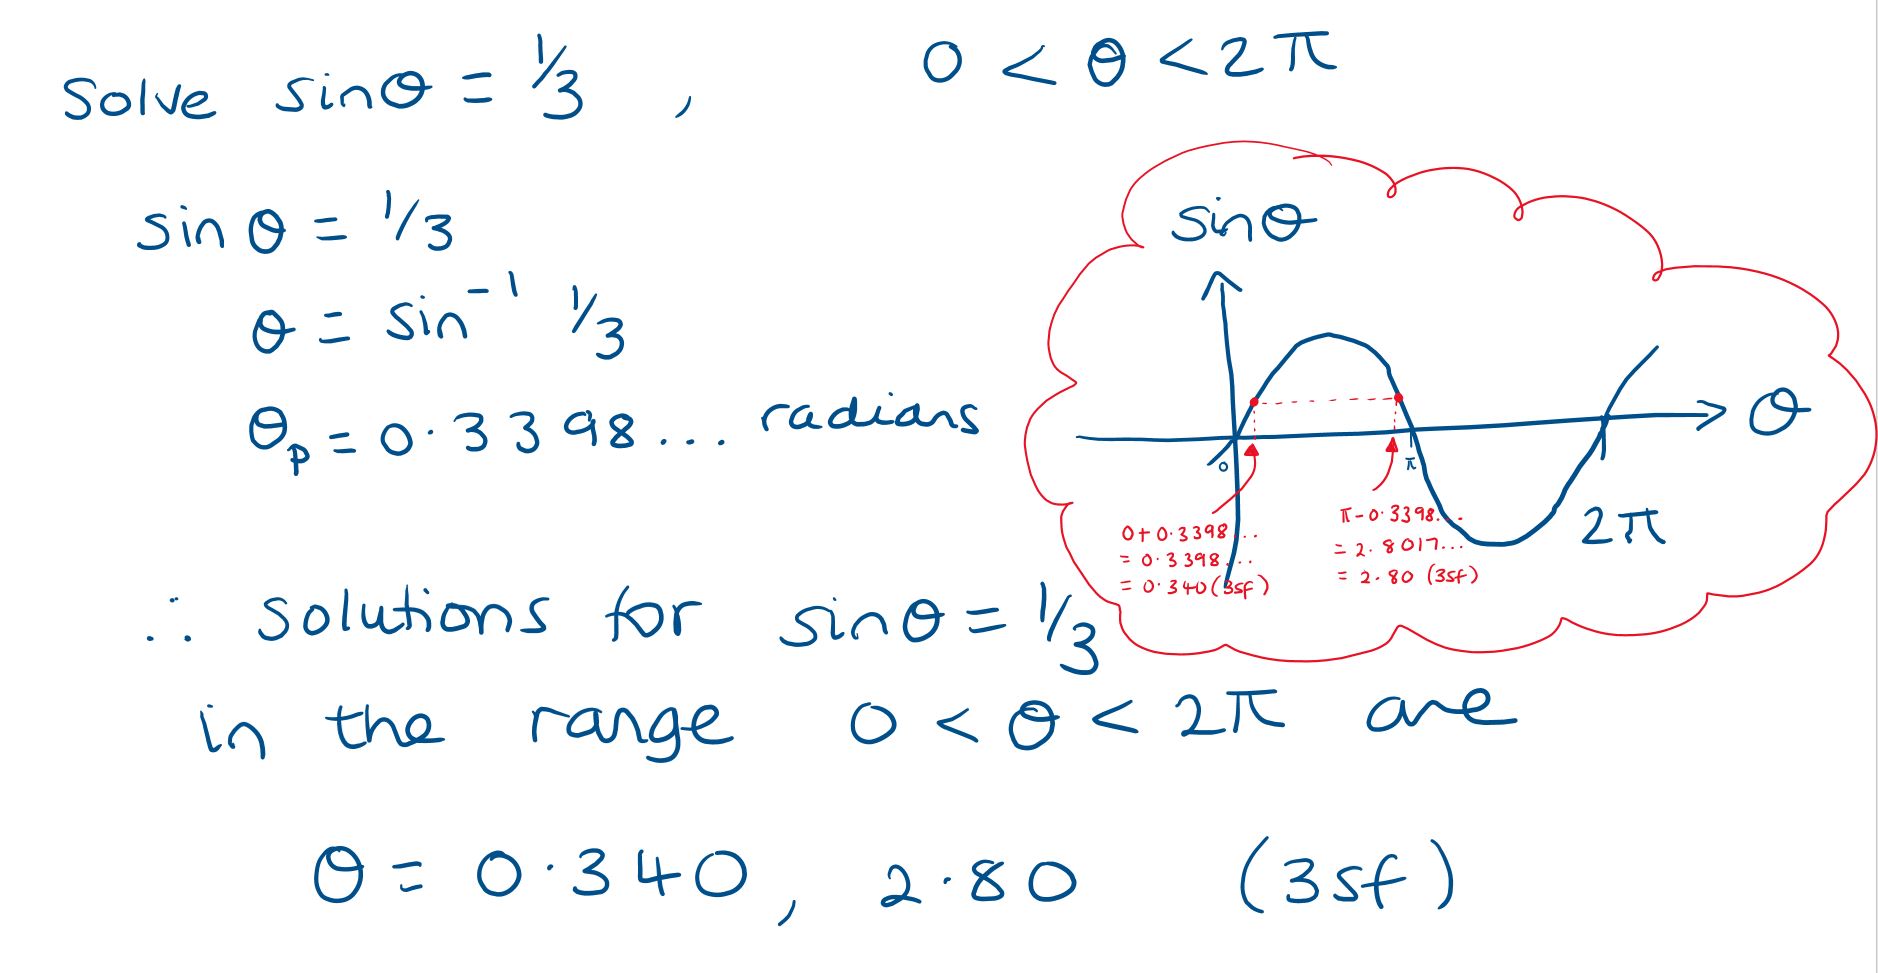 Solve sinθ = 1/3 , 0 < θ < 2π
sin θ = 1/3
θ = sin⁻¹ 1/3
θp = 0.3398... radians
sinθ
θ
0
π
2π
0+0.3398...
= 0.3398...
= 0.340 (3sf)
π-0.3398...
= 2.8017...
= 2.80 (3sf)
∴ solutions for sinθ = 1/3
in the range 0 < θ < 2π are
θ = 0.340, 2.80 (3sf)